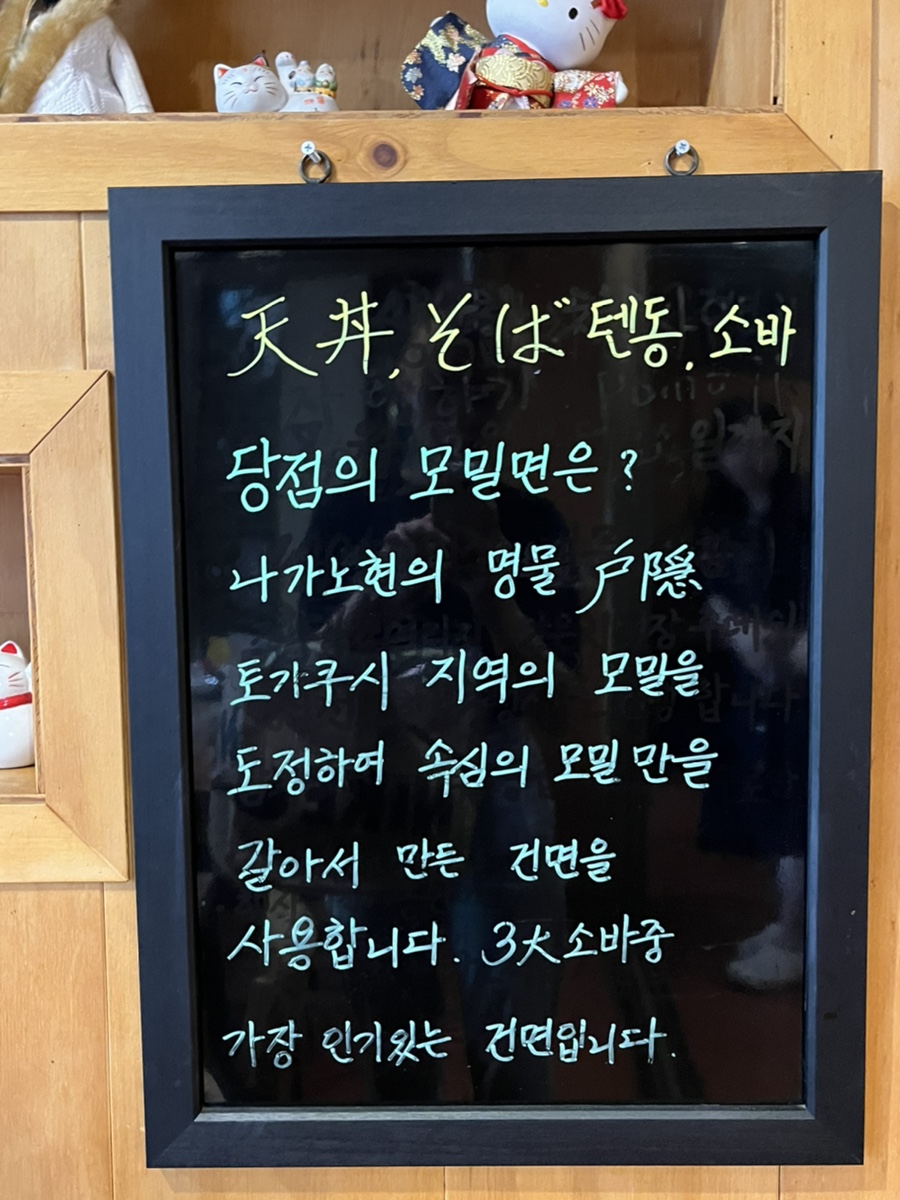 天丼, そば 텐동, 소바
당점의 모밀면은?
나가노현의 명물 戸隠
토가쿠시 지역의 모밀을
도정하여 속심의 모밀만을
갈아서 만든 건면을
사용합니다. 3大소바중
가장 인기있는 건면입니다.